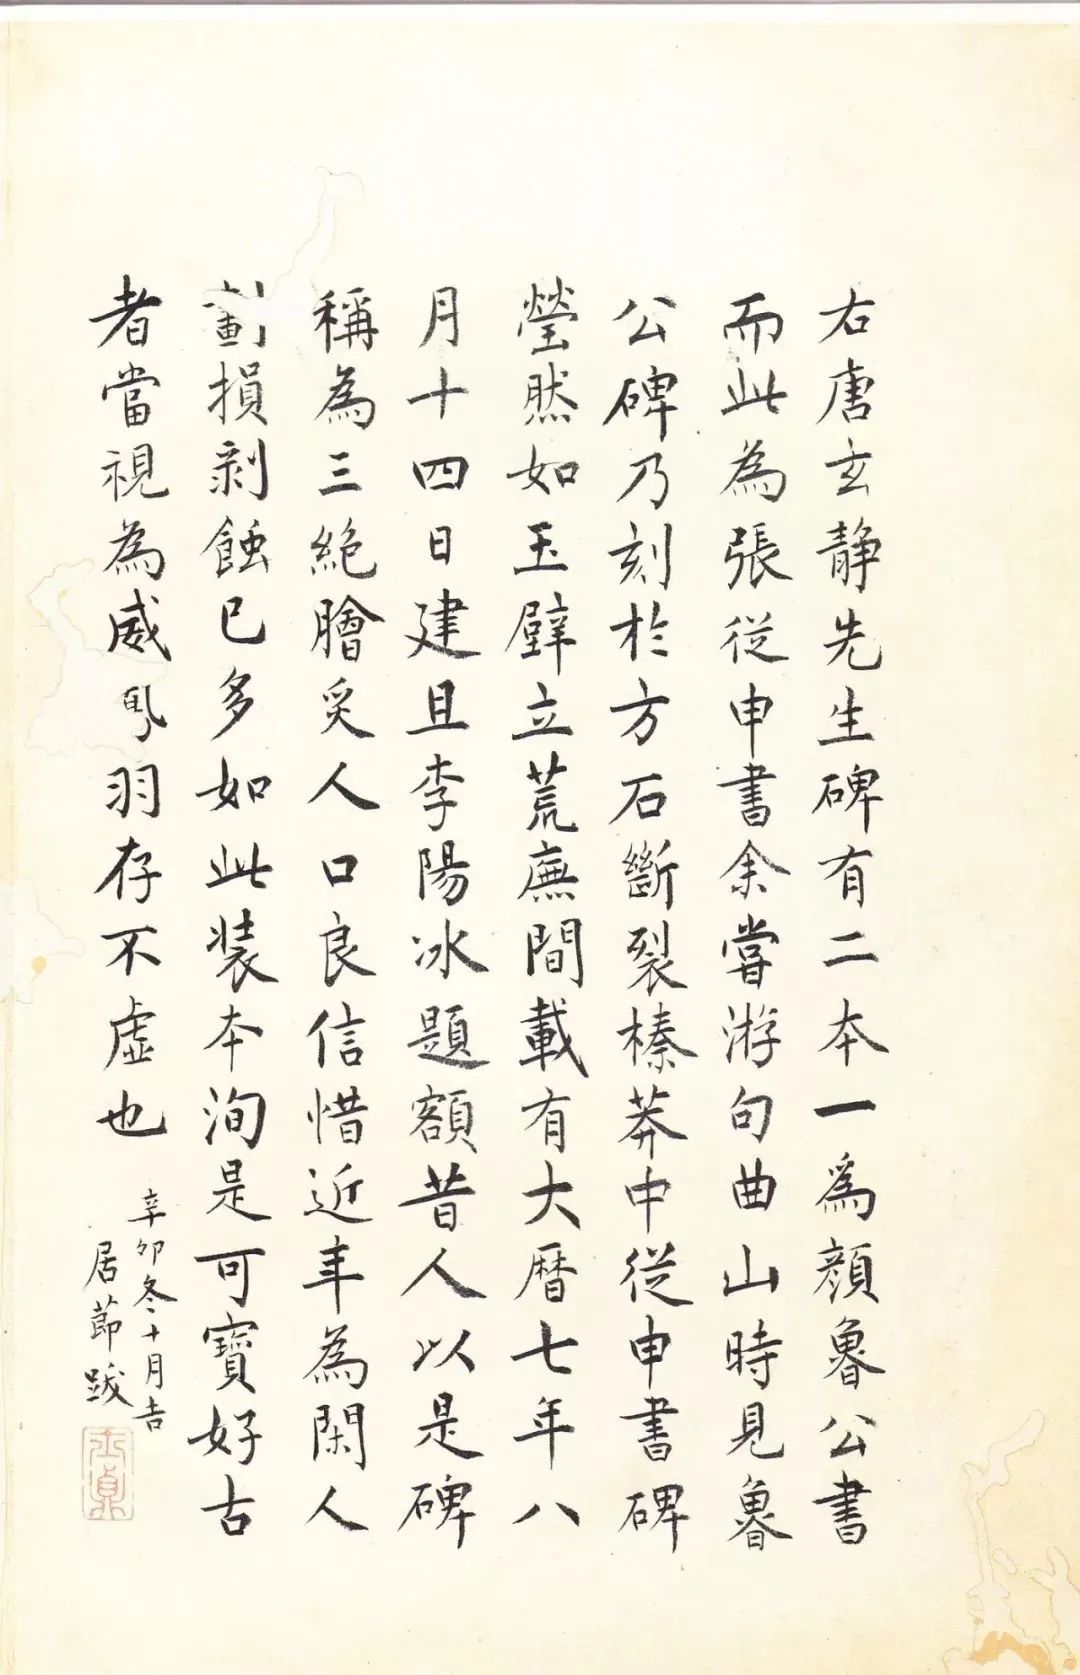 右唐玄靜先生碑有二本一為顏魯公書
而此為張從申書余嘗游句曲山時見魯
公碑乃刻於方石斷裂榛莽中從申書碑
瑩然如玉壁立荒廡間載有大曆七年八
月十四日建且李陽冰題額昔人以是碑
稱為三絕膾炙人口良信惜近年為閑人
劃損剝蝕已多如此裝本洵是可寶好古
者當視為威鳳羽存不虛也
辛卯冬十月吉
居節跋
士貞